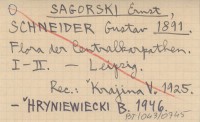 O SAGORSKI Ernst,
SCHNEIDER Gustav 1891.
Flora der Centralkarpathen.
I-II. - Leipzig.
Rec.: Krajina V. 1925.
- " HRYNIEWIECKI B. 1946.
BT/049/0745